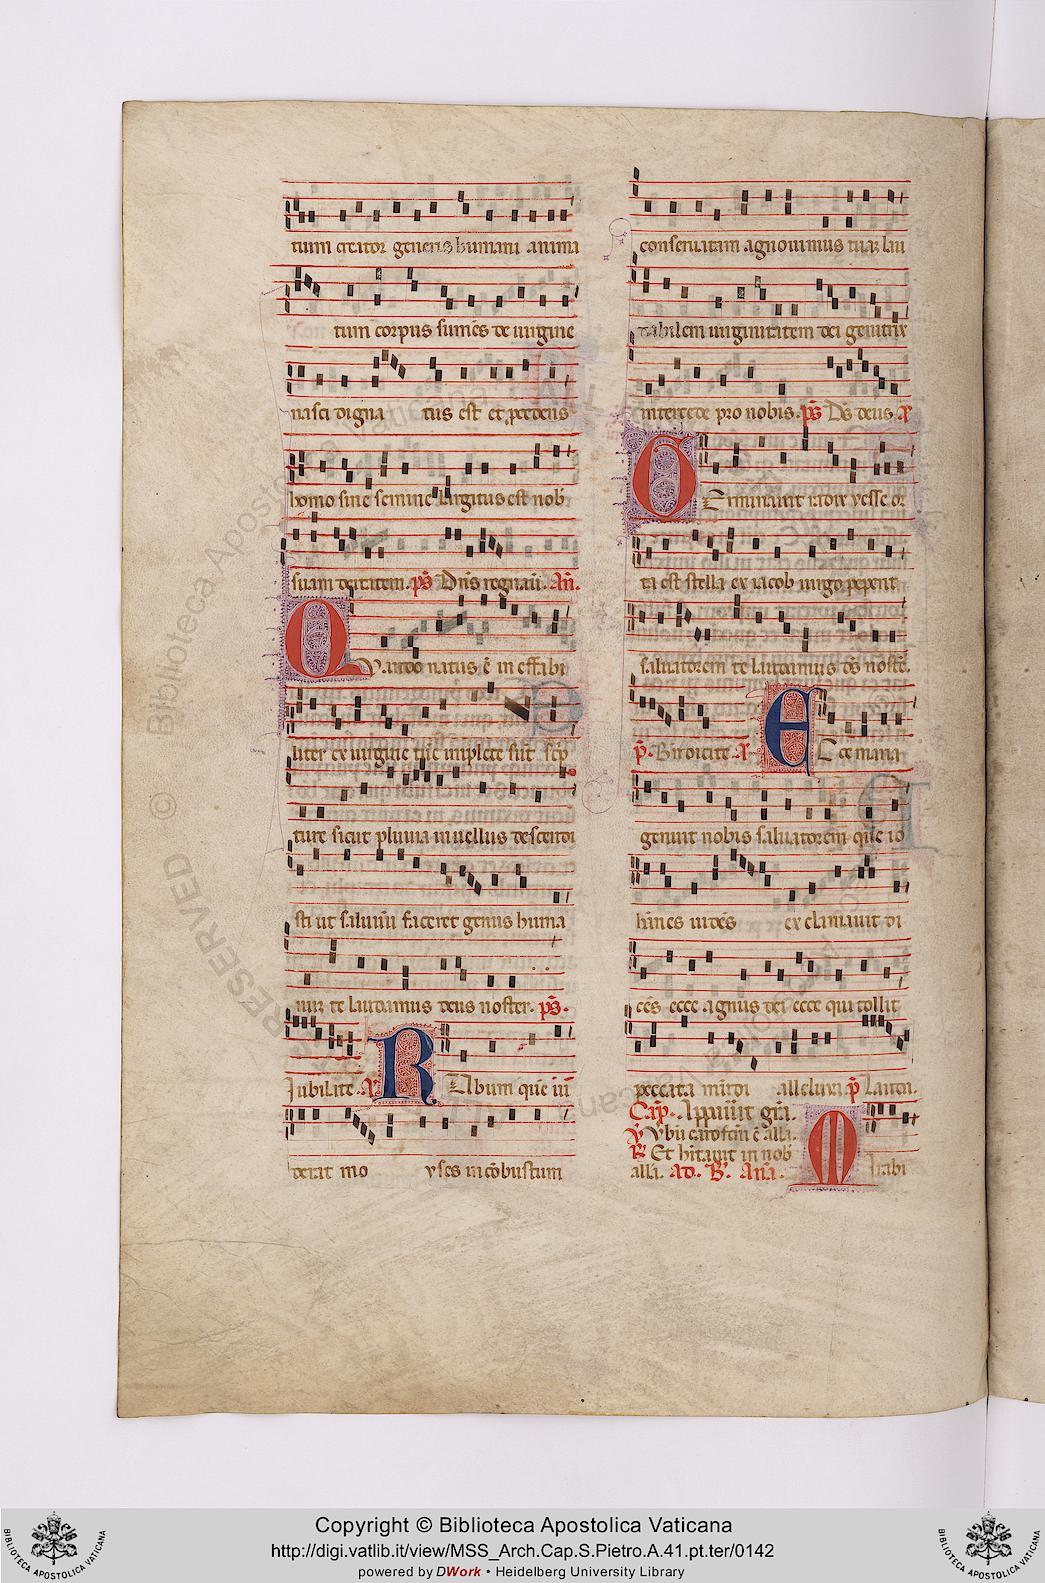 tium creator generis humani anima
tum corpus sumēs de uirgine
nasci digna tus est et, p̱cedens
homo sine semine largitus est nob̄
suam deitatem. p̄s. Dn̄s regnauit. An̄.
Quando natus ē in effabi
liter ex uirgine tūc implete sūt sc̄p
ture sicut pluuia in uellus descendi
sti ut saluū faceret genus huma
num te laudamus deus noster. p̄s.
Jubilate. A Rubum quē ui
derat mo yses in cōbustum
conseruatam agnouimus tuā lau
dabilem uirginitatem dei genitrix
intercede pro nobis. p̄s Ds̄ deus. A
Germinauit radix yesse or
ta est stella ex iacob uirgo peperit
saluatorem te laudamus ds̄ noster.
p̄. Bn̄dicite. A Ecce maria
genuit nobis saluatorem quē io
hānes uidēs exclamauit di
cēs ecce agnus dei ecce qui tollit
peccata mūdi alleluia p̄ Laudā.
Cap̄. Apparuit grā.
℣ Verbū caro fctm̄ ē alla.
℟ Et hītauit in nob̄
alla. ad. B̄. An̄a. Mirabi
RESERVED © Biblioteca Apostolica Vaticana
Copyright © Biblioteca Apostolica Vaticana
http://digi.vatlib.it/view/MSS_Arch.Cap.S.Pietro.A.41.pt.ter/0142
powered by DWork • Heidelberg University Library
BIBLIOTECA APOSTOLICA VATICANA
BIBLIOTECA APOSTOLICA VATICANA